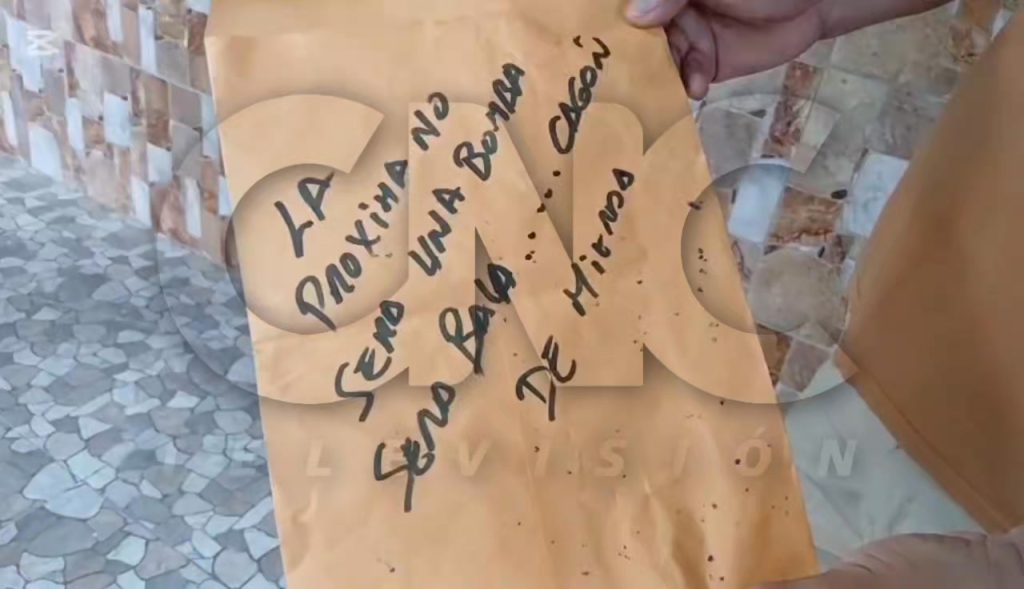 LA
PROXIMA NO
SERA UNA BOMBA
SERA BALA..... CAGON
DE MIERDA
CNC
TELEVISIÓN